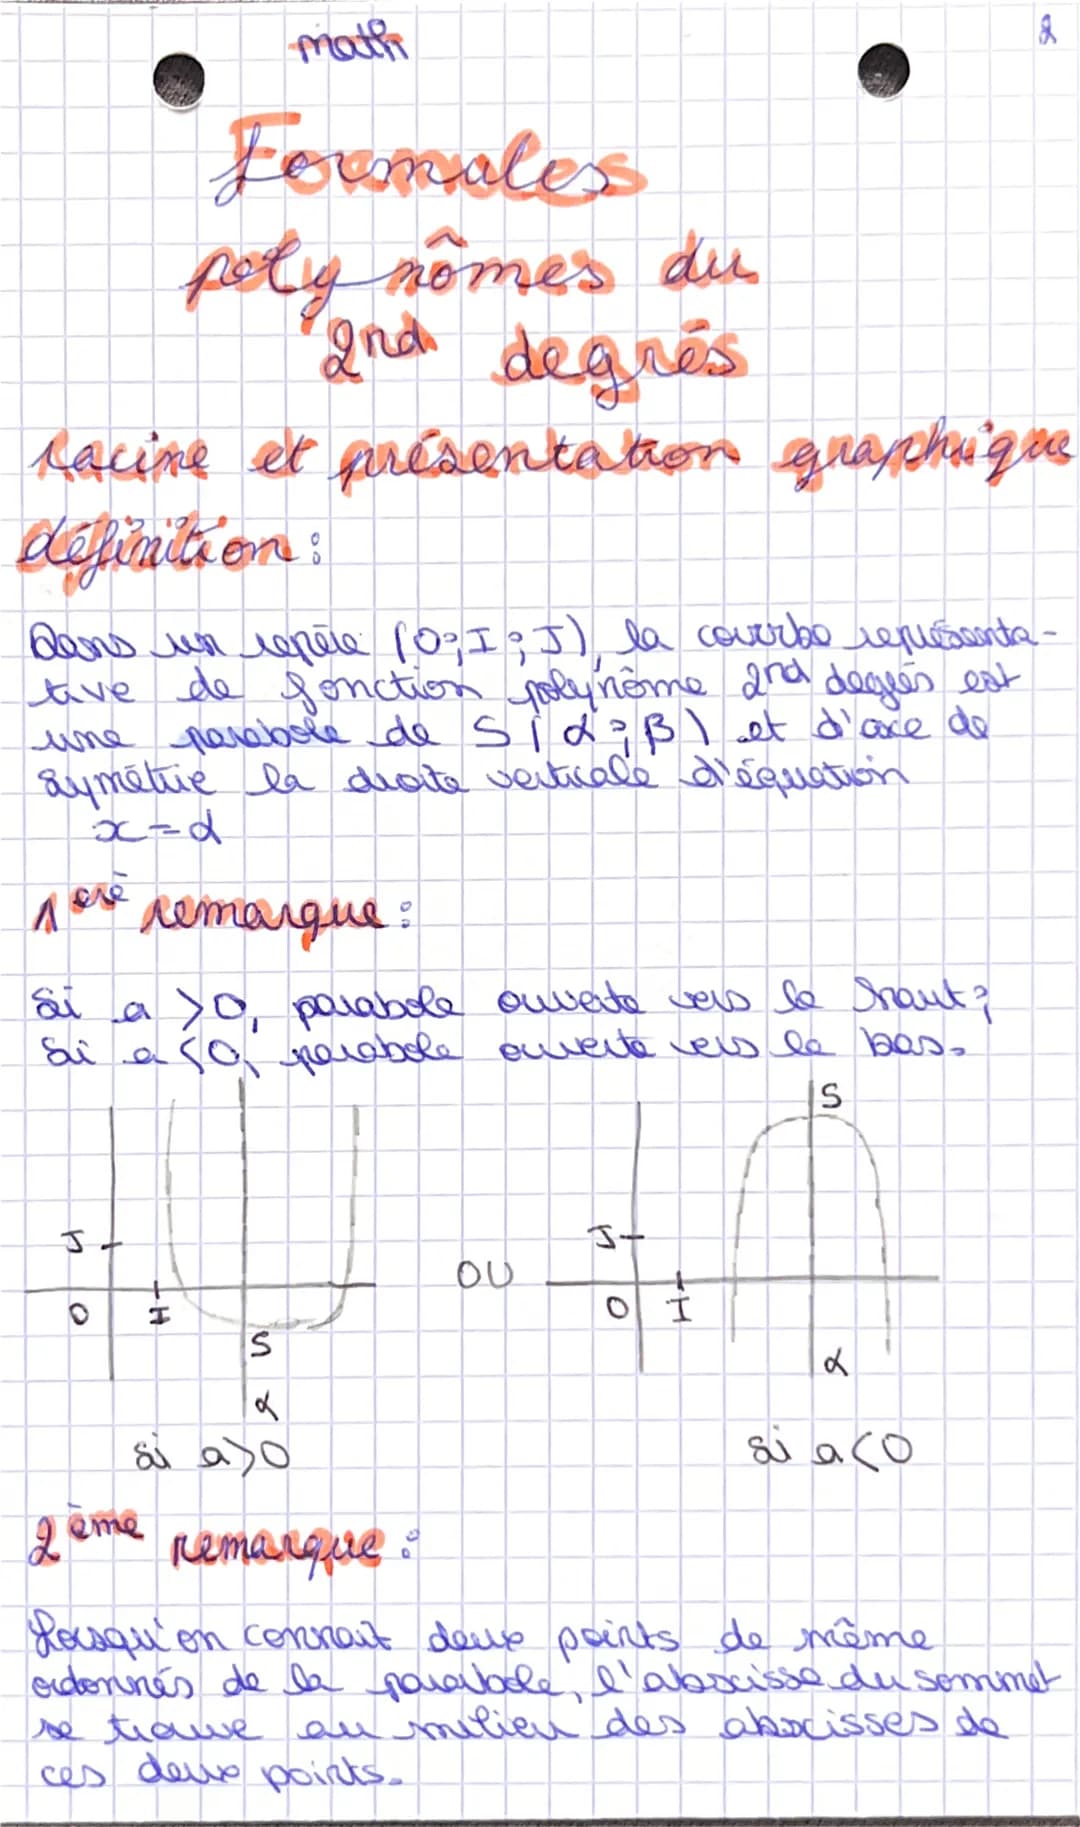 math
2
Formules
polynômes du
2nd degrés
racine et présentation graphique
définition :
Dans un repère (O;I;J), la courbe représenta-
tive de fonction polynôme 2nd degrés est
une parabole de S(α;β) et d'axe de
symétrie la droite verticale d'équation
x=α
1erè remarque :
Si a >0, parabole ouverte vers le haut;
Si a <0, parabole ouverte vers le bas.
S
J
J
OU
O
I
O
I
S
α
α
Si a>0
Si a<0
2ème remarque :
Lorsqu'on connait deux points de même
ordonnés de la parabole, l'abscisse du sommet
se trouve au milieu des abscisses de
ces deux points.